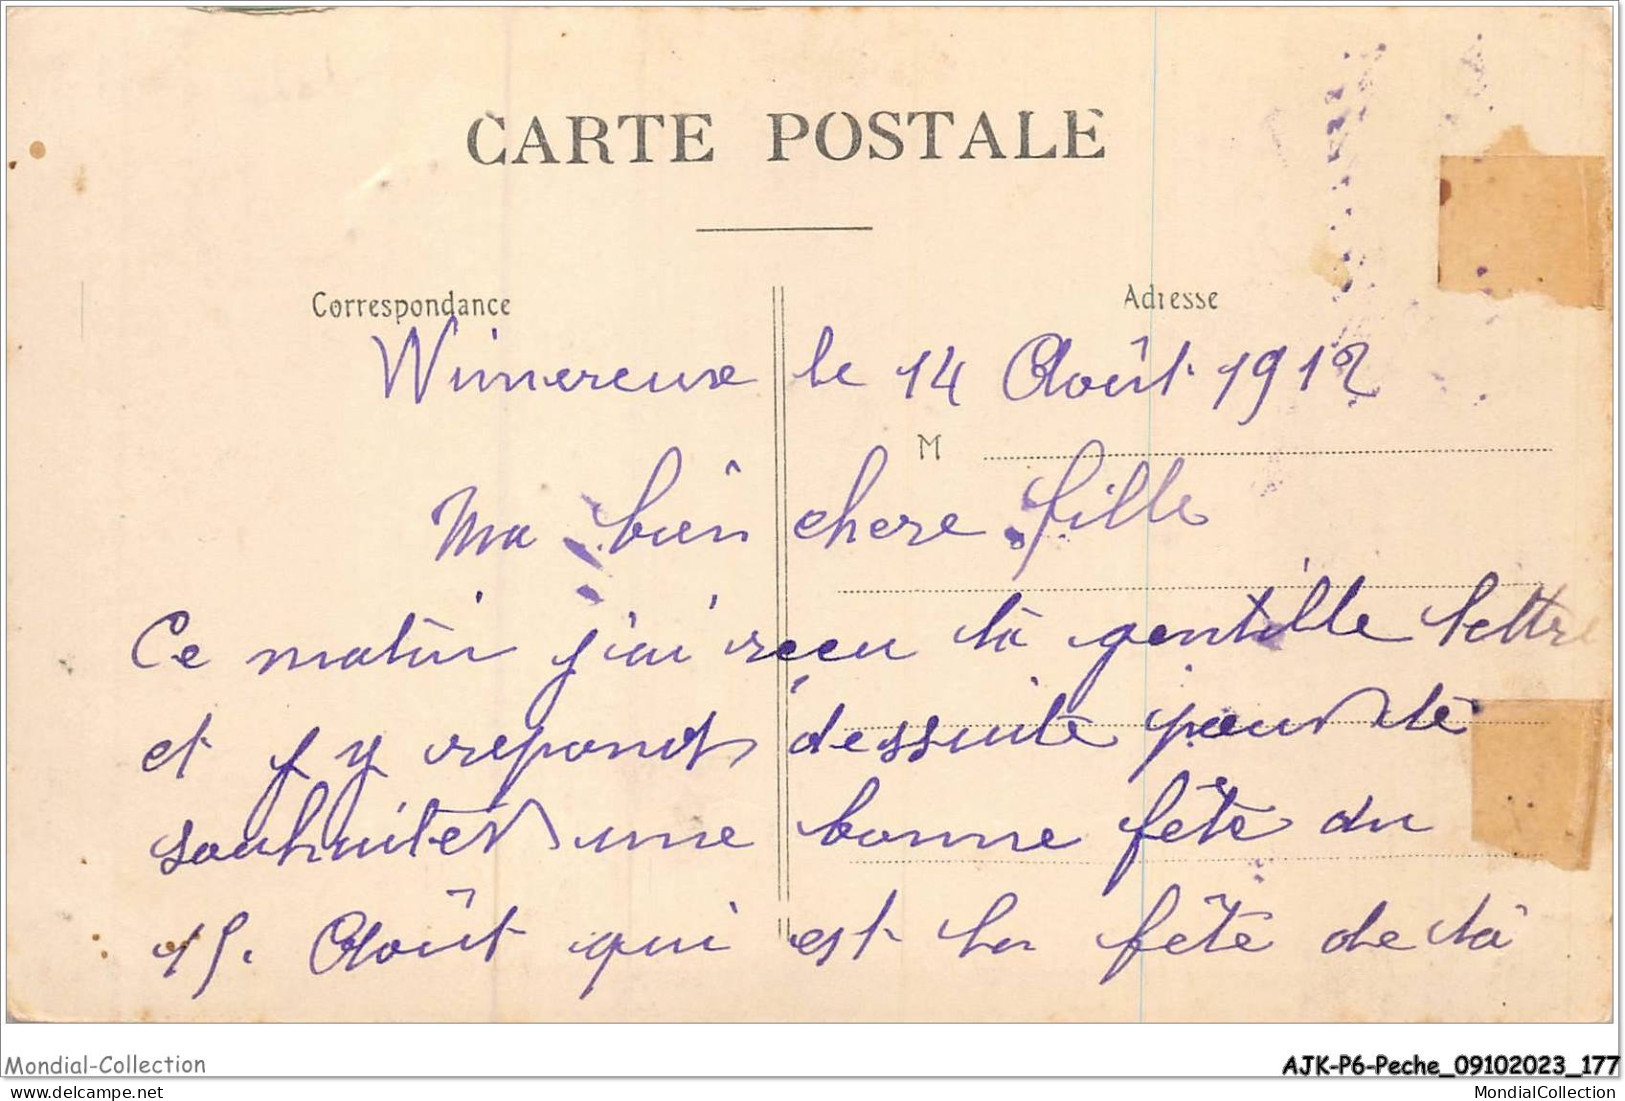 CARTE POSTALE
Correspondance
Adresse
Wimereux le 14 Août 1912
M
Ma bien chere fille
Ce matin j'ai reçu tà gentille lettre
et j y repond dessuite pour te
souhaiter une bonne fête du
15. Août qui est la fête de tà
Mondial-Collection
AJK-P6-Peche_09102023_177
delcampe.net
MondialCollection